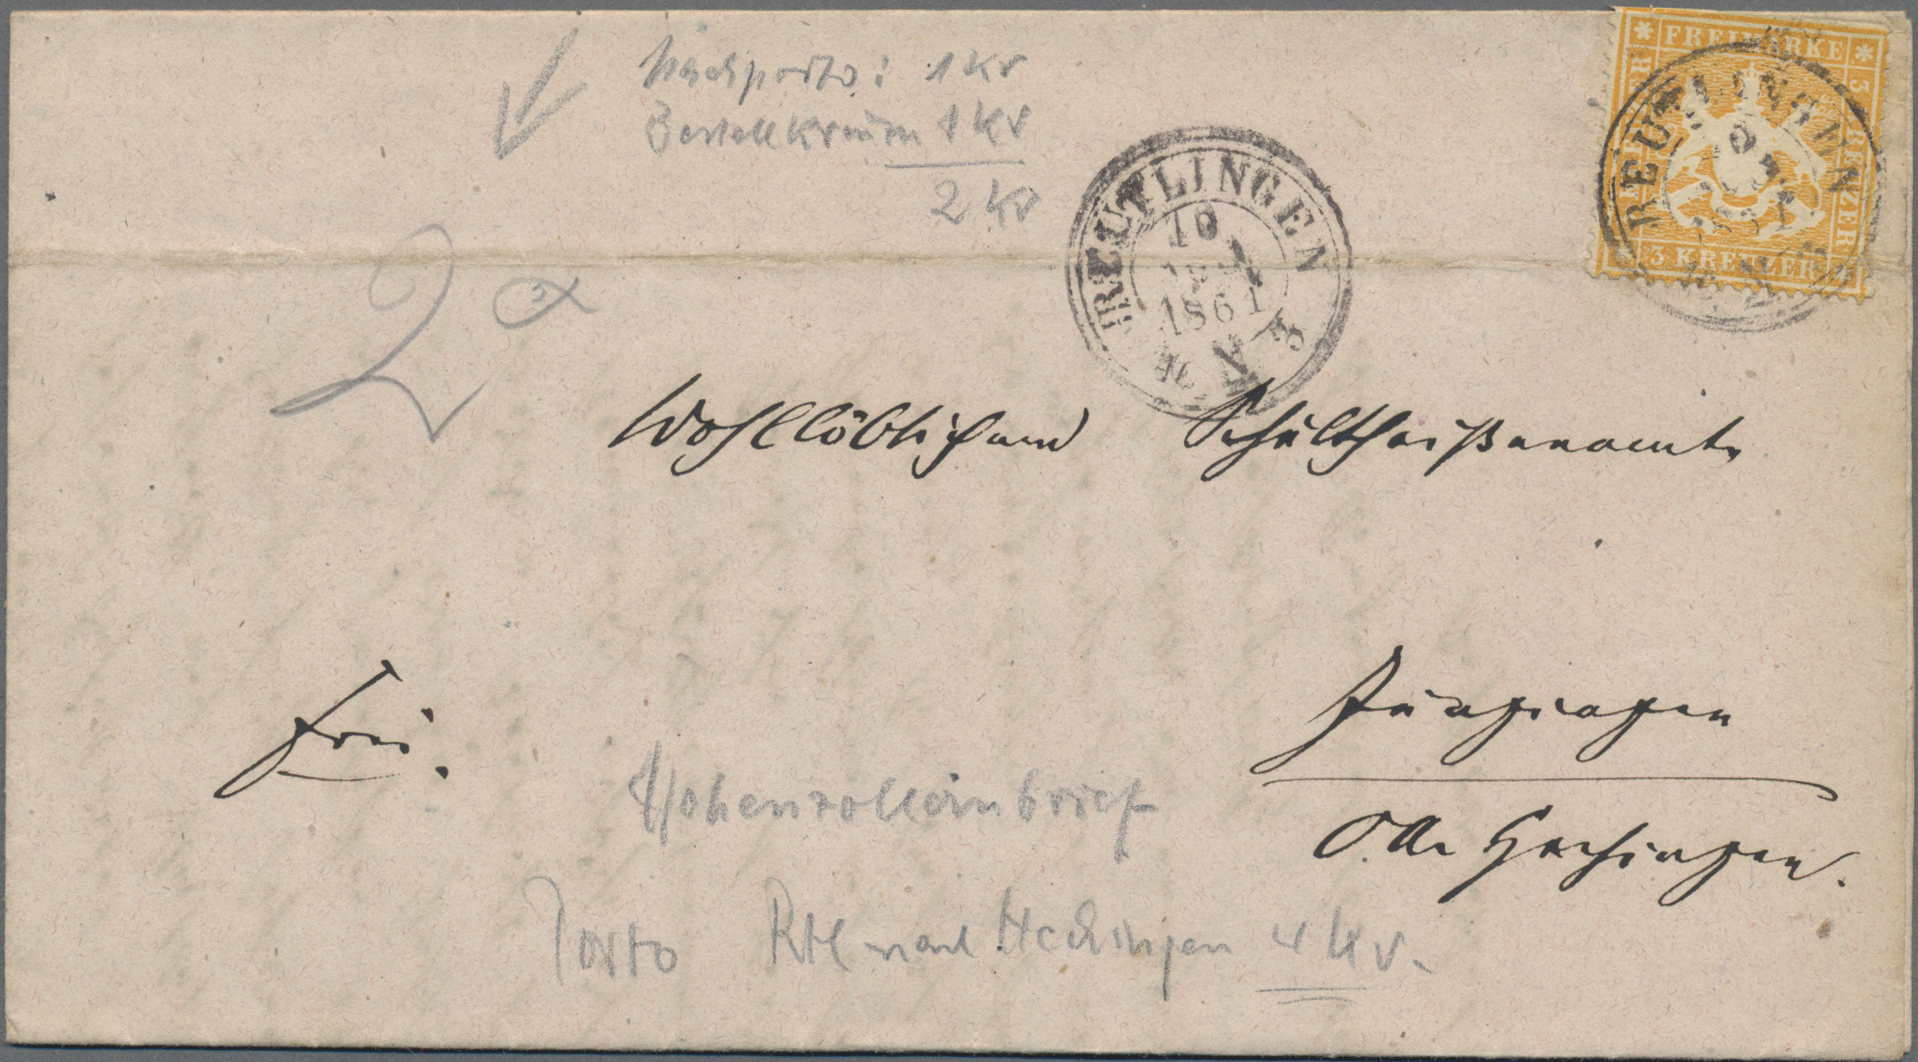 Nachporto: 1 Kr
Bestellkreuzer 1 Kr
2 Kr
2
REUTLINGEN
10
1861
FREIMARKE
3 KREUZER
REUTLINGEN
Wohllöblichem Schultheißenamt
Frei.
Jungingen
O.A. Hechingen.
Hohenzollernbrief
Porto Rtl nach Hechingen 4 Kr.